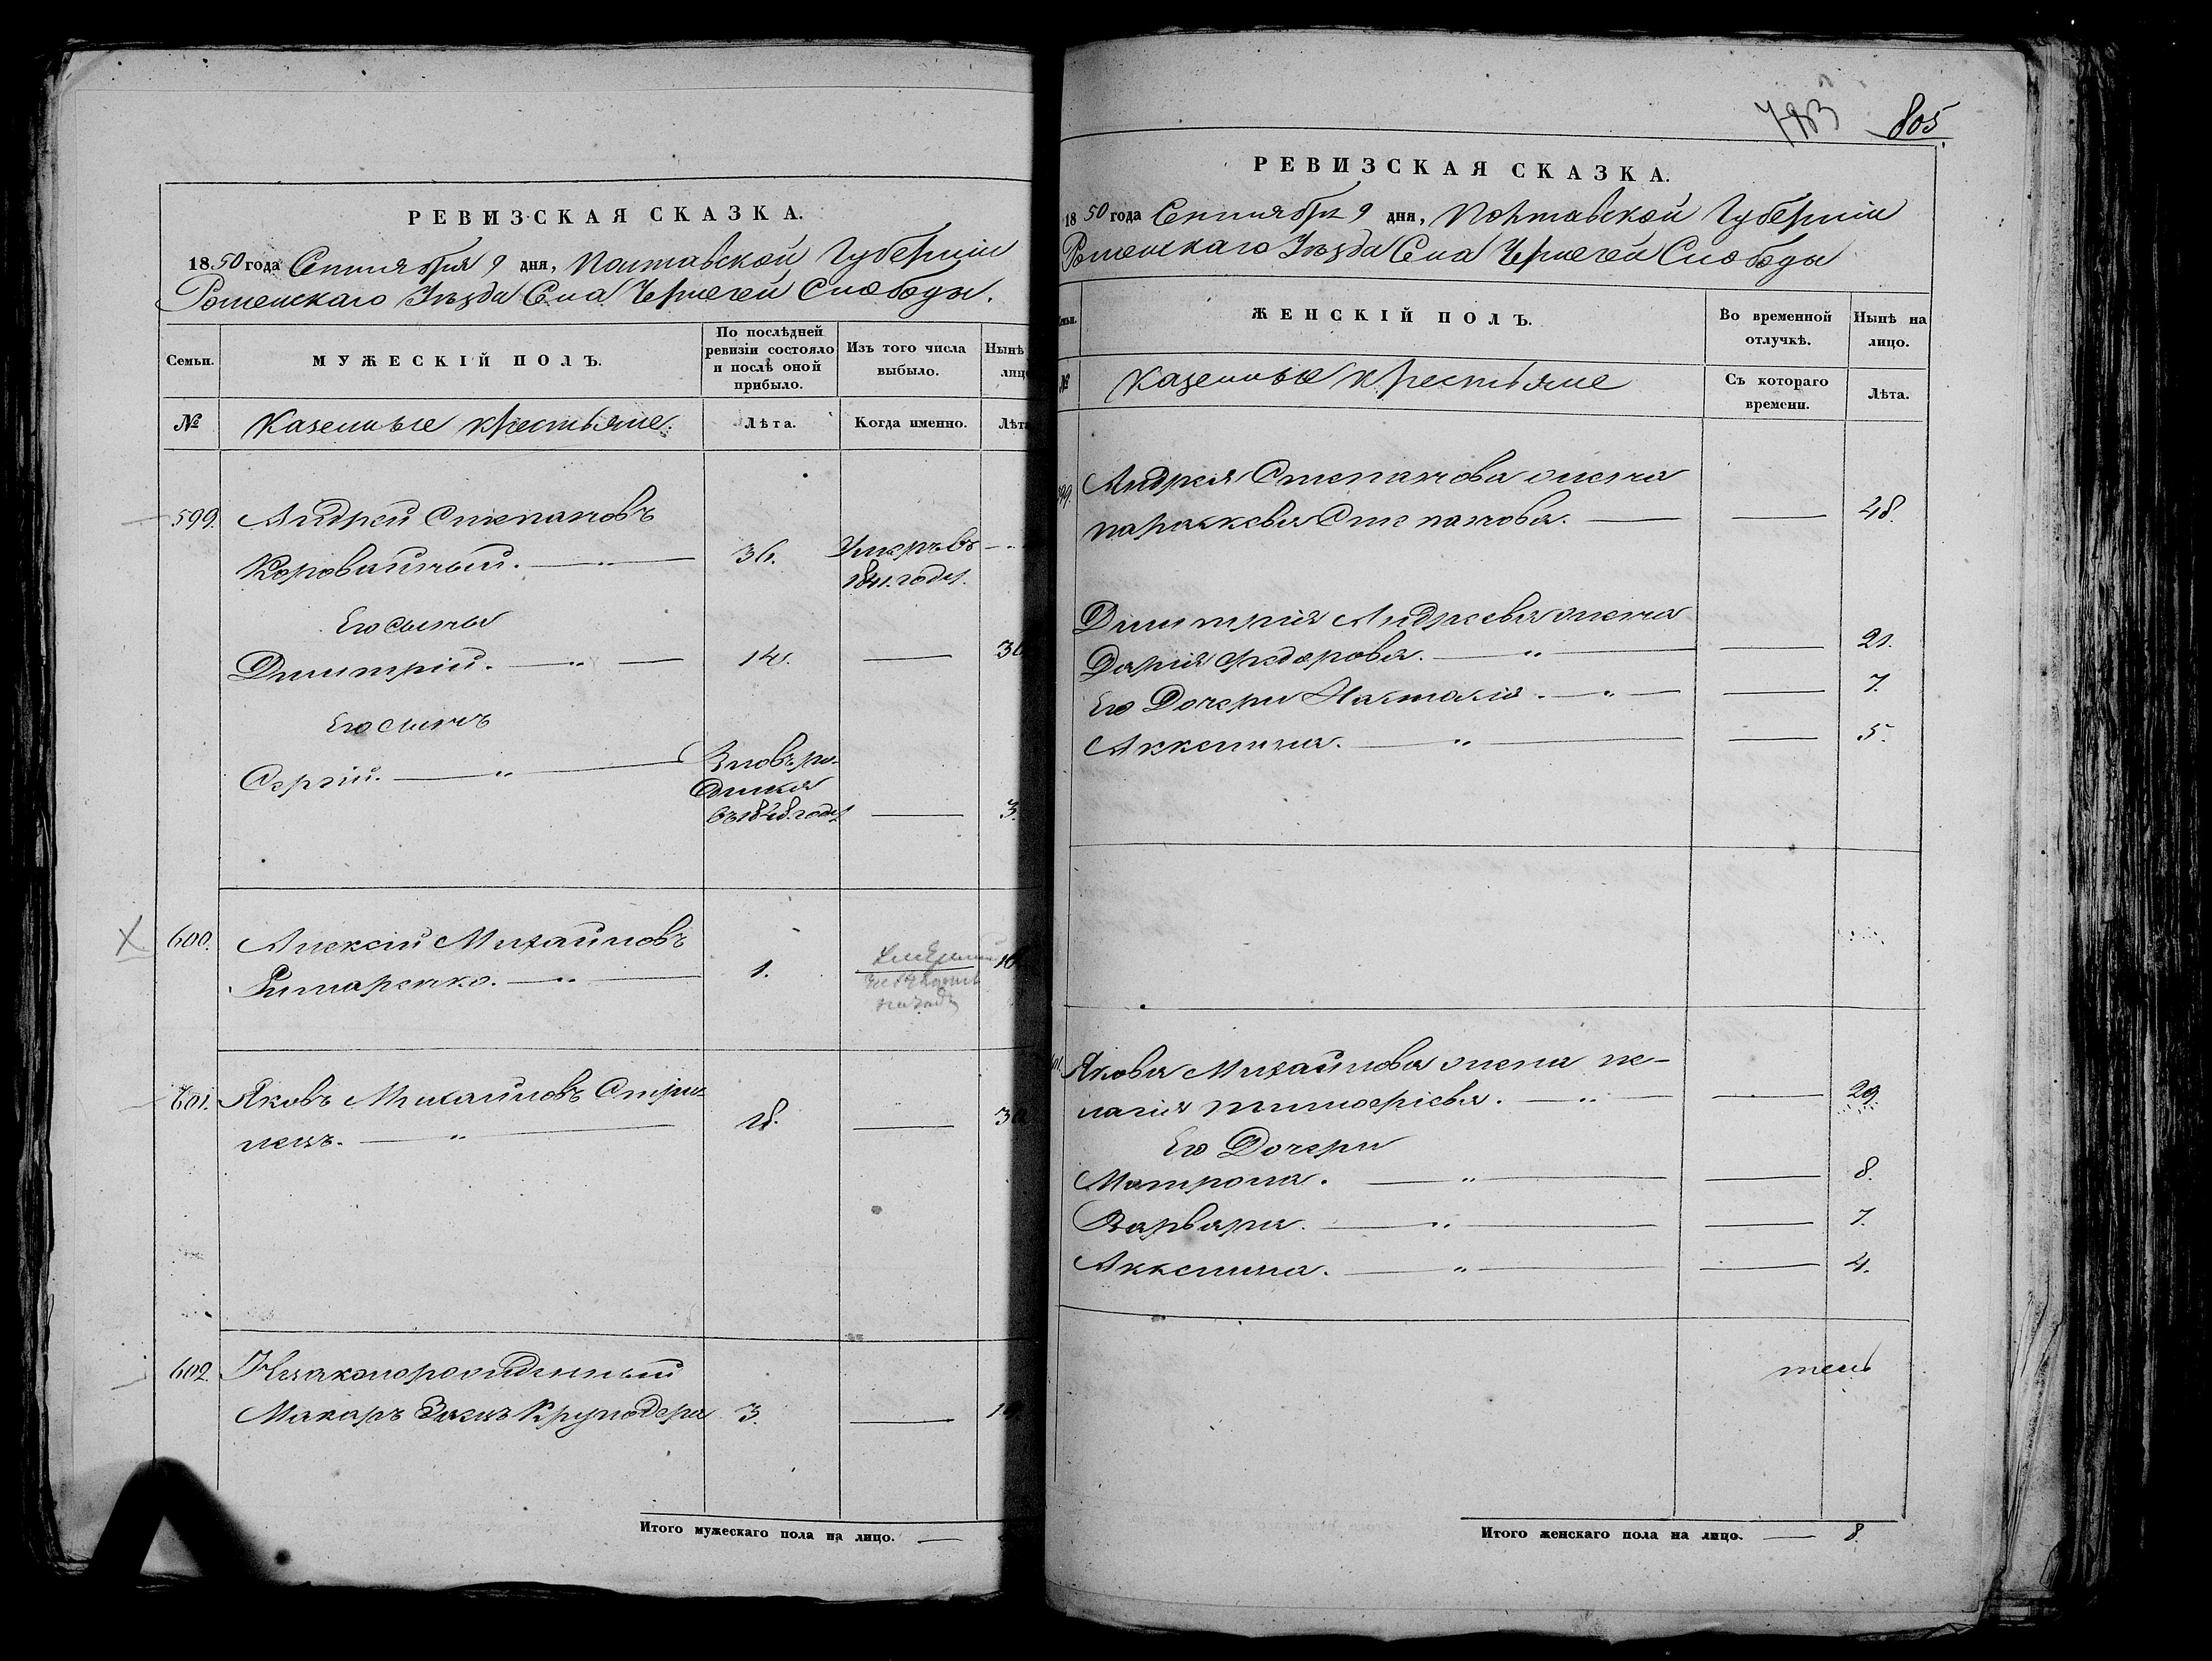 РЕВИЗСКАЯ СКАЗКА.
1850 года Сентября 9 дня, Полтавской Губернiи
Роменскаго Уѣзда Села Чернечей Слободы.
Семьи.
МУЖЕСКІЙ ПОЛЪ.
По послѣдней ревизіи состояло и послѣ оной прибыло.
Изъ того числа выбыло.
Нынѣ
лиц
№
Казенные крестьяне.
Лѣта.
Когда именно.
Лѣта
599. Андрей Степановъ
Коровайный. 36. Умеръ въ
1841. году.
Его сыны
Дмитрій. 14. 30
Его сынъ
Сергiй. Вновь ро-
дился
въ 1848. году 3.
600. Алексiй Михайловъ
Римаренко. 1.
601. Яковъ Михайловъ Стри-
лецъ. 30
602. Незаконорожденный
Макаръ Заецъ Круподера 3.
Итого мужескаго пола на лицо.
783 805
РЕВИЗСКАЯ СКАЗКА.
1850 года Сентября 9 дня, Полтавской Губернiи
Роменскаго Уѣзда Села Чернечей Слободы
Семьи.
ЖЕНСКІЙ ПОЛЪ.
Во временной отлучкѣ.
Нынѣ на лицо.
№
Казенные крестьяне
Съ котораго времени.
Лѣта.
599. Андрея Степанова жена
Параскевья Степанова. 48.
Дмитрия Андреева жена
Дария Федорова. 21.
Его Дочери Наталiя. 7.
Акксинья. 5.
601. Якова Михайлова жена Пе-
лагiя Тимофiева. 29.
Его Дочери
Матрона. 8.
Варвара. 7.
Акксинья. 4.
Итого женскаго пола на лицо. 8.